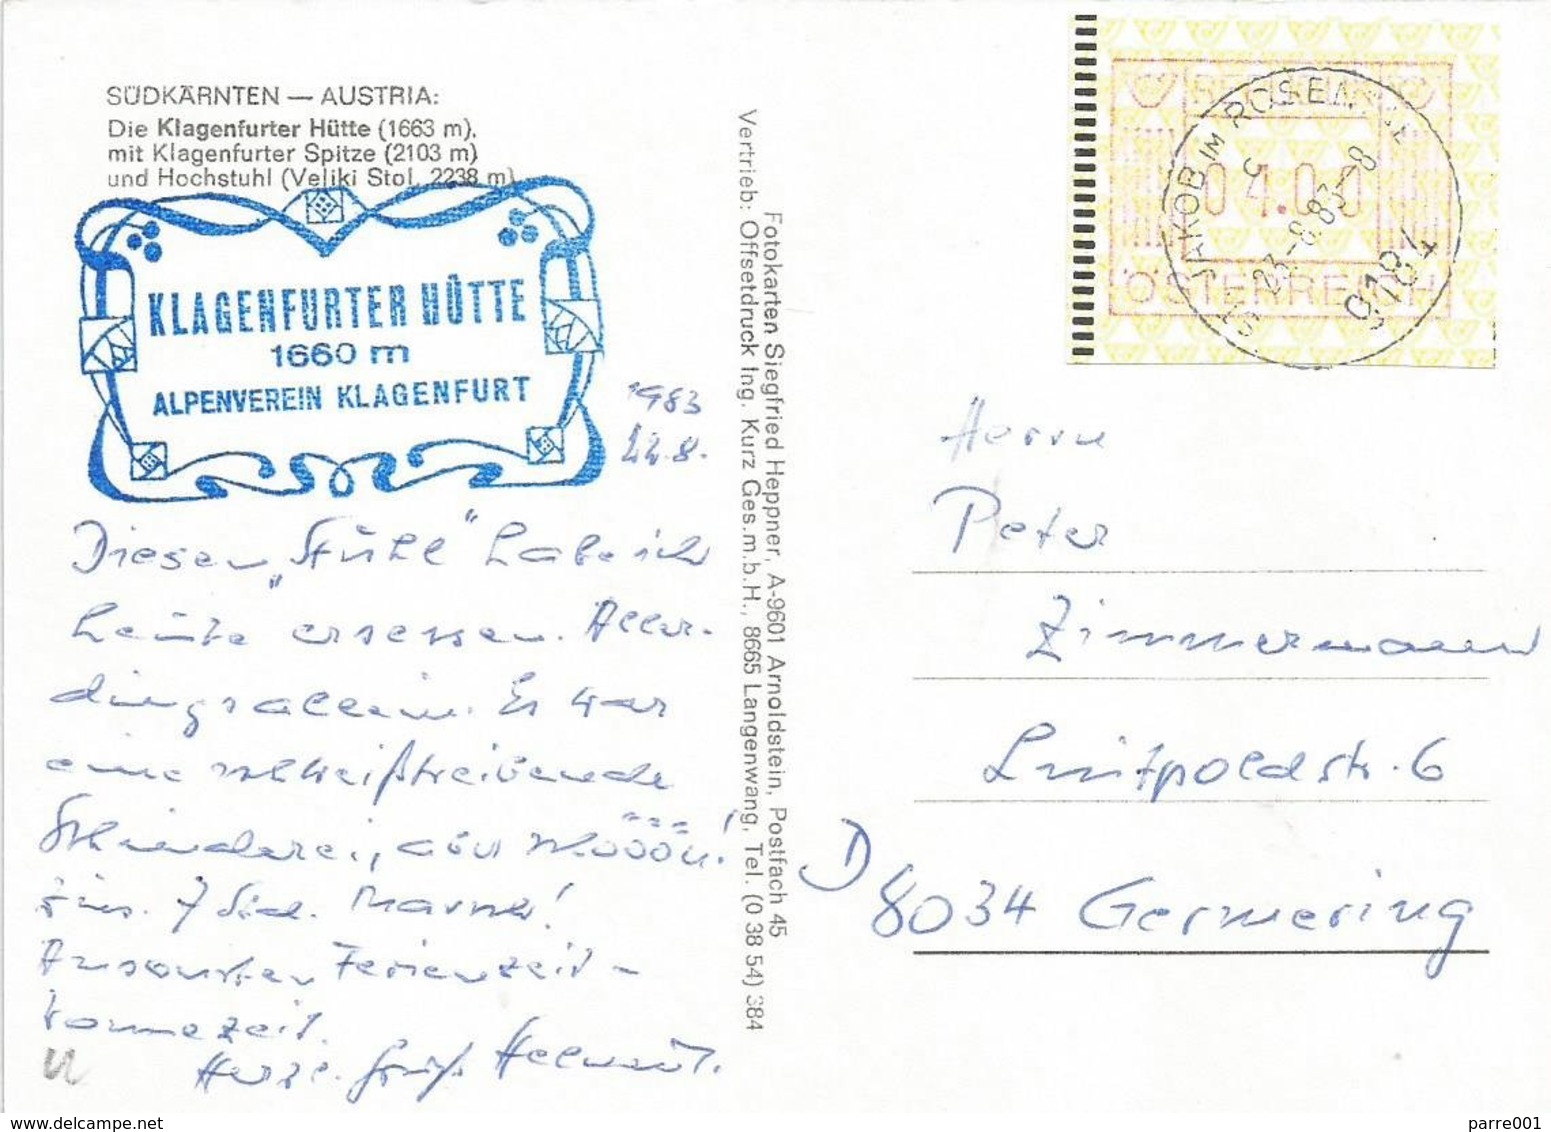 SÜDKÄRNTEN — AUSTRIA:
Die Klagenfurter Hütte (1663 m),
mit Klagenfurter Spitze (2103 m)
und Hochstuhl (Veliki Stol, 2238 m)
KLAGENFURTER HÜTTE
1660 m
ALPENVEREIN KLAGENFURT
1983
22.8.
Diesen „Stuhl" habe ich
heute ersessen. Aller-
dings allein. Es war
eine schweißtreibende
Schinderei, aber schööön!
7 Std. Marsch!
Ansonsten Ferienzeit -
Wonnezeit.
Herzl. Gruß Helmut.
Fotokarten Siegfried Heppner, A-9601 Arnoldstein, Postfach 45
Vertrieb: Offsetdruck Ing. Kurz Ges.m.b.H., 8665 Langenwang, Tel. (0 38 54) 384
04.00
ÖSTERREICH
ST. JAKOB IM ROSENTAL
c
23.-8.83--8
9184
Herrn
Peter
Zimmermann
Luitpoldstr. 6
D 8034 Germering
www.delcampe.net
parre001